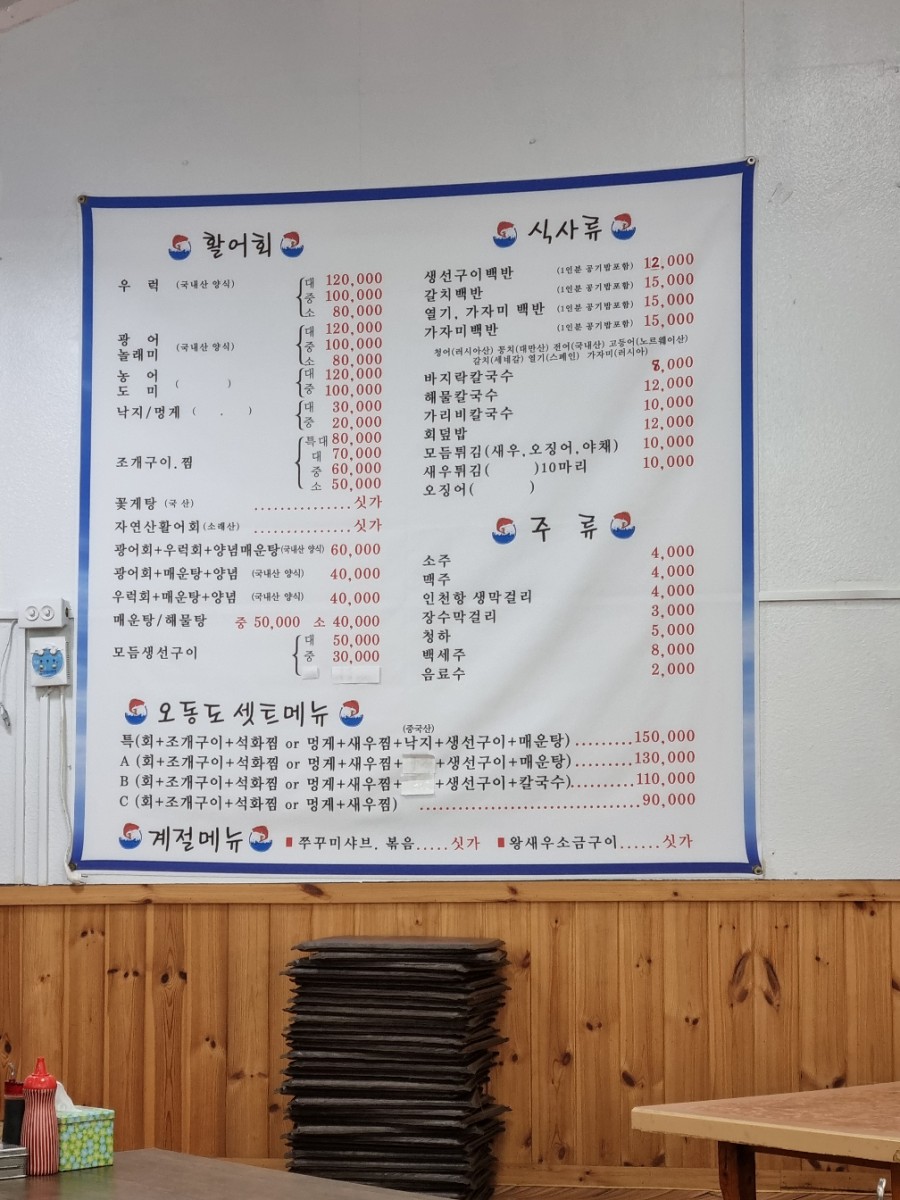 활어회
우 럭 (국내산 양식) 대 120,000
중 100,000
소 80,000
광 어
놀래미 (국내산 양식) 대 120,000
중 100,000
소 80,000
농 어
도 미 ( ) 대 120,000
중 100,000
낙지/멍게 ( . ) 대 30,000
중 20,000
조개구이.찜 특대 80,000
대 70,000
중 60,000
소 50,000
꽃게탕 (국 산) ................ 싯가
자연산활어회(소래산) ................ 싯가
광어회+우럭회+양념매운탕(국내산 양식) 60,000
광어회+매운탕+양념 (국내산 양식) 40,000
우럭회+매운탕+양념 (국내산 양식) 40,000
매운탕/해물탕 중 50,000 소 40,000
모듬생선구이 대 50,000
중 30,000
식사류
생선구이백반 (1인분 공기밥포함) 12,000
갈치백반 (1인분 공기밥포함) 15,000
열기, 가자미 백반 (1인분 공기밥포함) 15,000
가자미백반 (1인분 공기밥포함) 15,000
청어(러시아산) 꽁치(대만산) 전어(국내산) 고등어(노르웨이산)
갈치(세네갈) 열기(스페인) 가자미(러시아)
바지락칼국수 8,000
해물칼국수 12,000
가리비칼국수 10,000
회덮밥 12,000
모듬튀김(새우,오징어,야채) 10,000
새우튀김( )10마리 10,000
오징어( )
주 류
소주 4,000
맥주 4,000
인천항 생막걸리 4,000
장수막걸리 3,000
청하 5,000
백세주 8,000
음료수 2,000
오동도 셋트메뉴
(중국산)
특(회+조개구이+석화찜 or 멍게+새우찜+낙지+생선구이+매운탕) .........150,000
A (회+조개구이+석화찜 or 멍게+새우찜+ +생선구이+매운탕) .........130,000
B (회+조개구이+석화찜 or 멍게+새우찜+ +생선구이+칼국수)..........110,000
C (회+조개구이+석화찜 or 멍게+새우찜) ..................................90,000
계절메뉴 쭈꾸미샤브. 볶음.....싯가 왕새우소금구이......싯가